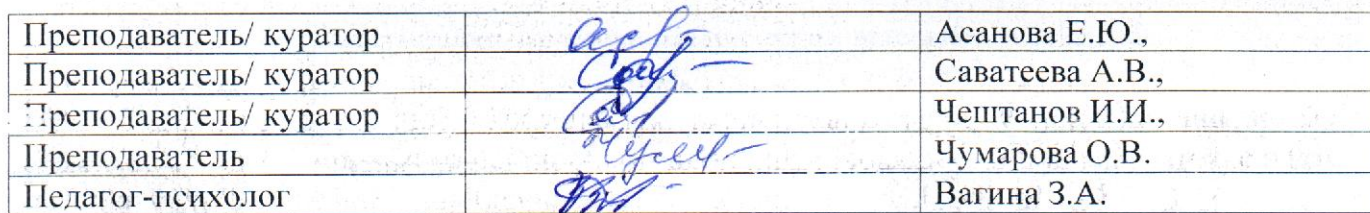 Преподаватель/ куратор Асанова Е.Ю.,
Преподаватель/ куратор Саватеева А.В.,
Преподаватель/ куратор Чештанов И.И.,
Преподаватель Чумарова О.В.
Педагог-психолог Вагина З.А.